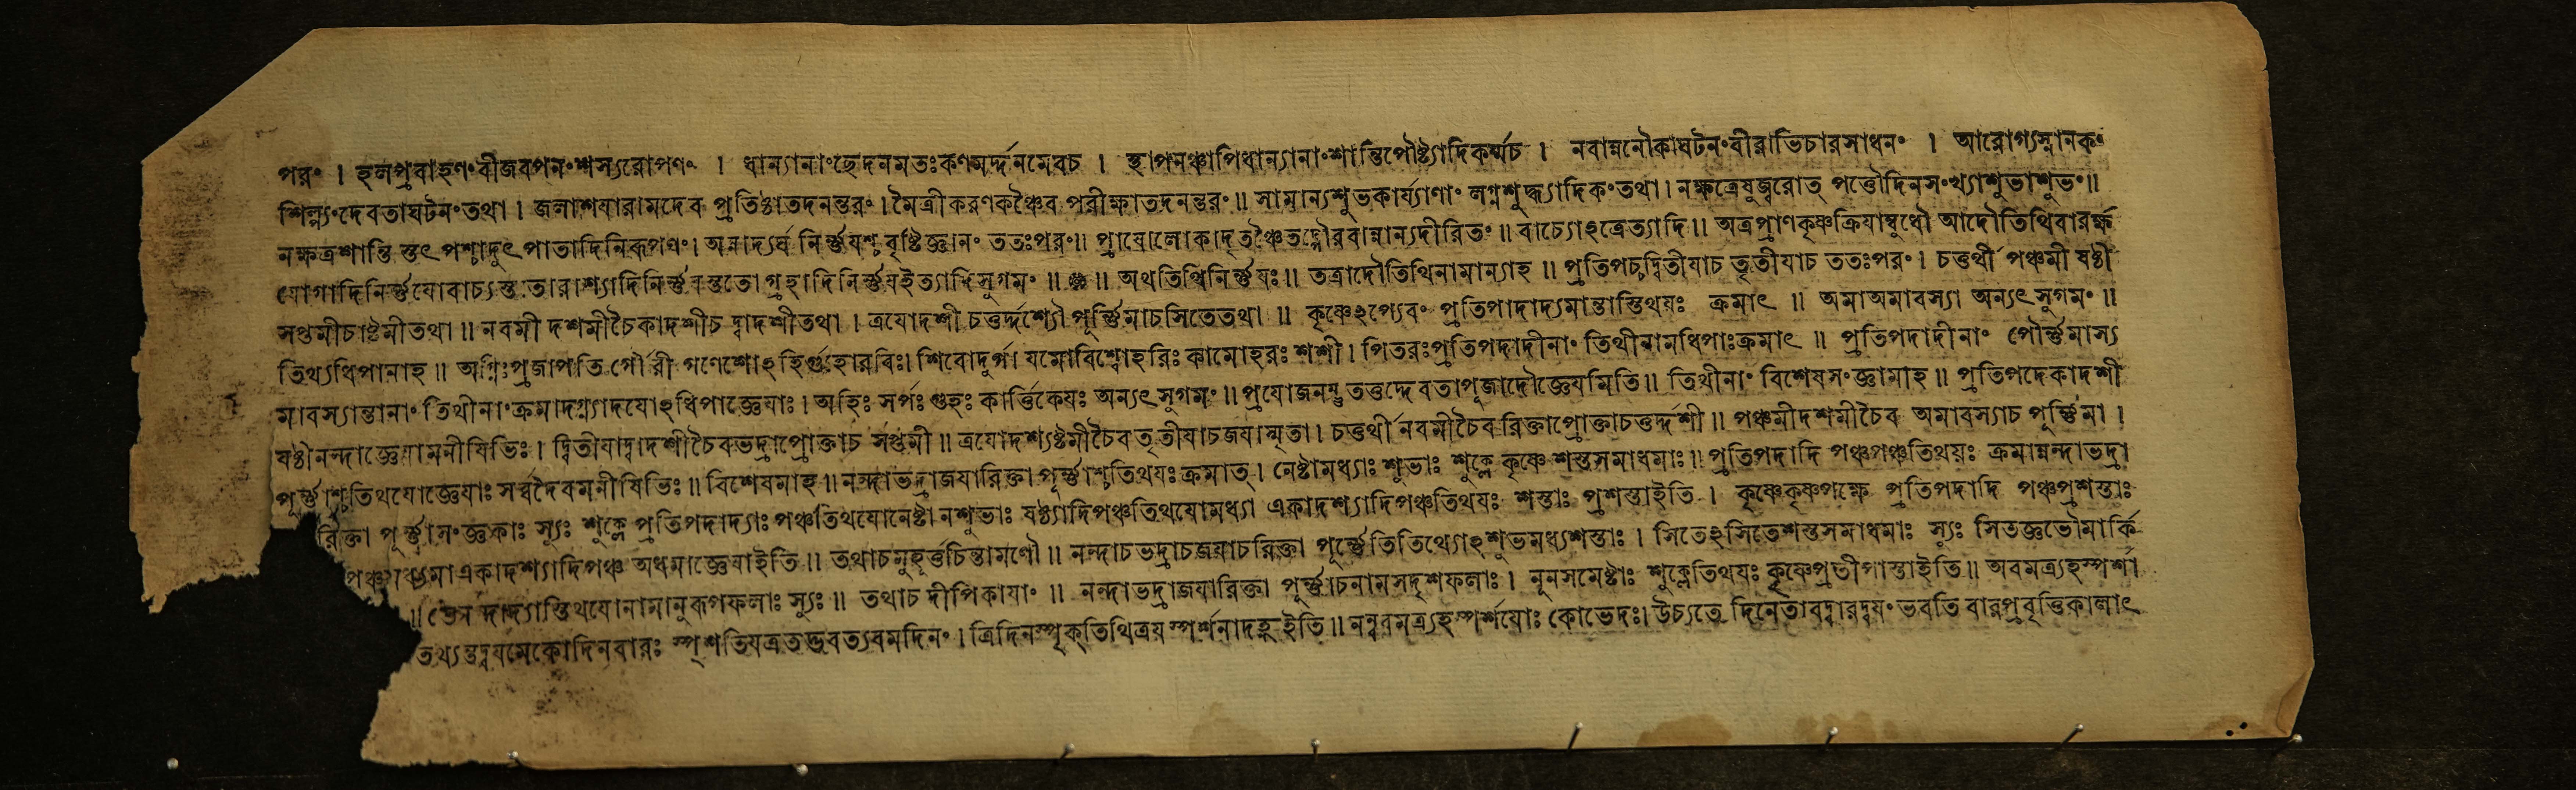 পরং । হলপ্রবাহণং বীজবপনং শস্যরোপণং । ধান্যানাং ছেদনমতঃ কণমর্দ্দনমেবচ । স্থাপনঞ্চাপিধান্যানাং শান্তিপৌষ্ট্যাদিকর্ম্মচ । নবান্ননৌকাঘটনং বীরাভিচারসাধনং । আরোগ্যস্নানকং
শিল্প্যং দেবতাঘটনং তথা । জলাশয়ারামদেব প্রতিষ্ঠাতদনন্তরং । মৈত্রীকরণকঞ্চৈব পরীক্ষাতদনন্তরং ॥ সামান্যশুভকার্য্যাণাং লগ্নশুদ্ধ্যাদিকং তথা । নক্ষত্রেষুজ্বরোত্ পত্তৌদিনসংখ্যাশুভাশুভং ॥
নক্ষত্রশান্তি স্তৎ পশ্চাদুৎ পাতাদিনিরূপণং । অন্নাদ্যর্ঘ নির্ণ্ণয়শ্চ বৃষ্টিজ্ঞানং ততঃপরং ॥ প্রায়োলোকাদৃতঞ্চৈতদ্গৌরবান্নান্যদীরিতং ॥ বাচ্যোঽত্রেত্যাদি ॥ অত্রপ্রাণকৃষ্ণক্রিয়াম্বুধৌ আদৌতিথিবারর্ক্ষ
যোগাদিনির্ণ্ণয়োবাচ্যস্তু তারাশ্যাদিনির্ণ্ণয়স্ততো গ্রহাদিনির্ণ্ণয়ইত্যাদিসুগমং ॥ অথতিথিনির্ণ্ণয়ঃ ॥ তত্রাদৌতিথিনামান্যাহ ॥ প্রতিপচ্চদ্বিতীয়াচ তৃতীয়াচ ততঃপরং । চতুর্থী পঞ্চমী ষষ্ঠী
সপ্তমীচাষ্টমীতথা ॥ নবমী দশমীচৈকাদশীচ দ্বাদশীতথা । ত্রয়োদশী চতুর্দ্দশ্যৌ পূর্ণ্ণিমাচসিতেতথা ॥ কৃষ্ণেঽপ্যেবং প্রতিপাদাদ্যমান্তাস্তিথয়ঃ ক্রমাৎ ॥ অমাঅমাবস্যা অন্যৎসুগমং ॥
তিথ্যধিপানাহ ॥ অগ্নিঃপ্রজাপতি গৌরী গণেশোঽহির্গুহোরবিঃ । শিবোদুর্গা যমোবিশ্বোহরিঃ কামোহরঃ শশী । পিতরঃপ্রতিপদাদীনাং তিথীনামধিপাঃক্রমাৎ ॥ প্রতিপদাদীনাং পৌর্ণ্ণমাস্য
মাবস্যান্তানাং তিথীনাং ক্রমাদগ্ন্যাদয়োঽধিপাজ্ঞেয়াঃ । অহিঃ সর্পঃ গুহঃ কার্ত্তিকেয়ঃ অন্যৎসুগমং ॥ প্রয়োজনন্তু তত্তদ্দেবতাপূজাদৌজ্ঞেয়মিতি ॥ তিথীনাং বিশেষসংজ্ঞামাহ ॥ প্রতিপদেকাদশী
ষষ্ঠীনন্দাজ্ঞেয়ামনীষিভিঃ । দ্বিতীয়াদ্বাদশীচৈবভদ্রাপ্রোক্তাচ সপ্তমী ॥ ত্রয়োদশ্যষ্টমীচৈবতৃতীয়াচজয়াস্মৃতা । চতুর্থী নবমীচৈব রিক্তাপ্রোক্তাচতুর্দ্দশী ॥ পঞ্চমীদশমীচৈব অমাবস্যাচ পূর্ণ্ণিমা ।
পূর্ণ্ণাশ্চতিথয়োজ্ঞেয়াঃ সর্ব্বদৈবমনীষিভিঃ ॥ বিশেষমাহ ॥ নন্দাভদ্রাজয়ারিক্তা পূর্ণ্ণাশ্চতিথয়ঃ ক্রমাত্ । নেষ্টামধ্যাঃ শুভাঃ শুক্লে কৃষ্ণে শস্তসমাধমাঃ ॥ প্রতিপদাদি পঞ্চপঞ্চতিথয়ঃ ক্রমান্নন্দাভদ্রা
রিক্তা পূর্ণ্ণাসংজ্ঞকাঃ স্যুঃ শুক্লে প্রতিপদাদ্যাঃ পঞ্চতিথয়োনেষ্টা নশুভাঃ ষষ্ঠ্যাদিপঞ্চতিথয়োমধ্যা একাদশ্যাদিপঞ্চতিথয়ঃ শস্তাঃ প্রশস্তাইতি । কৃষ্ণেকৃষ্ণপক্ষে প্রতিপদাদি পঞ্চপ্রশস্তাঃ
পঞ্চমধ্যমা একাদশ্যাদিপঞ্চ অধমাজ্ঞেয়াইতি ॥ তথাচমুহূর্ত্তচিন্তামণৌ ॥ নন্দাচভদ্রাচজয়াচরিক্তা পূর্ণ্ণেতিতিথ্যোঽশুভমধ্যশস্তাঃ । সিতেঽসিতেশস্তসমাধমাঃ স্যুঃ সিতজ্ঞভৌমার্কি
॥ দাদ্যাস্তিথয়োনামানুরূপফলাঃ স্যুঃ ॥ তথাচ দীপিকায়াং ॥ নন্দাভদ্রাজয়ারিক্তা পূর্ণ্ণাচনামসদৃশফলাঃ । নূনসমেষ্টাঃ শুক্লেতিথয়ঃ কৃষ্ণেপ্রতীপাস্তাইতি ॥ অবমত্র্যহস্পর্শা
তথ্যন্তদ্বয়মেকোদিনবারঃ স্পৃশতিযত্রতদ্ভবত্যবমদিনং । ত্রিদিনস্পৃক্তিথিত্রয়স্পর্শনাদহ্নইতি ॥ নন্ববমত্র্যহস্পর্শয়োঃ কোভেদঃ । উচ্যতে দিনেতাবদ্বারদ্বয়ং ভবতি বারপ্রবৃত্তিকালাৎ